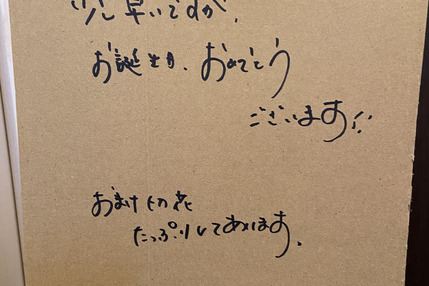 少し早いですが、
お誕生日、おめでとう
ございます!!
おまけもの表
たっぷりしてあります。